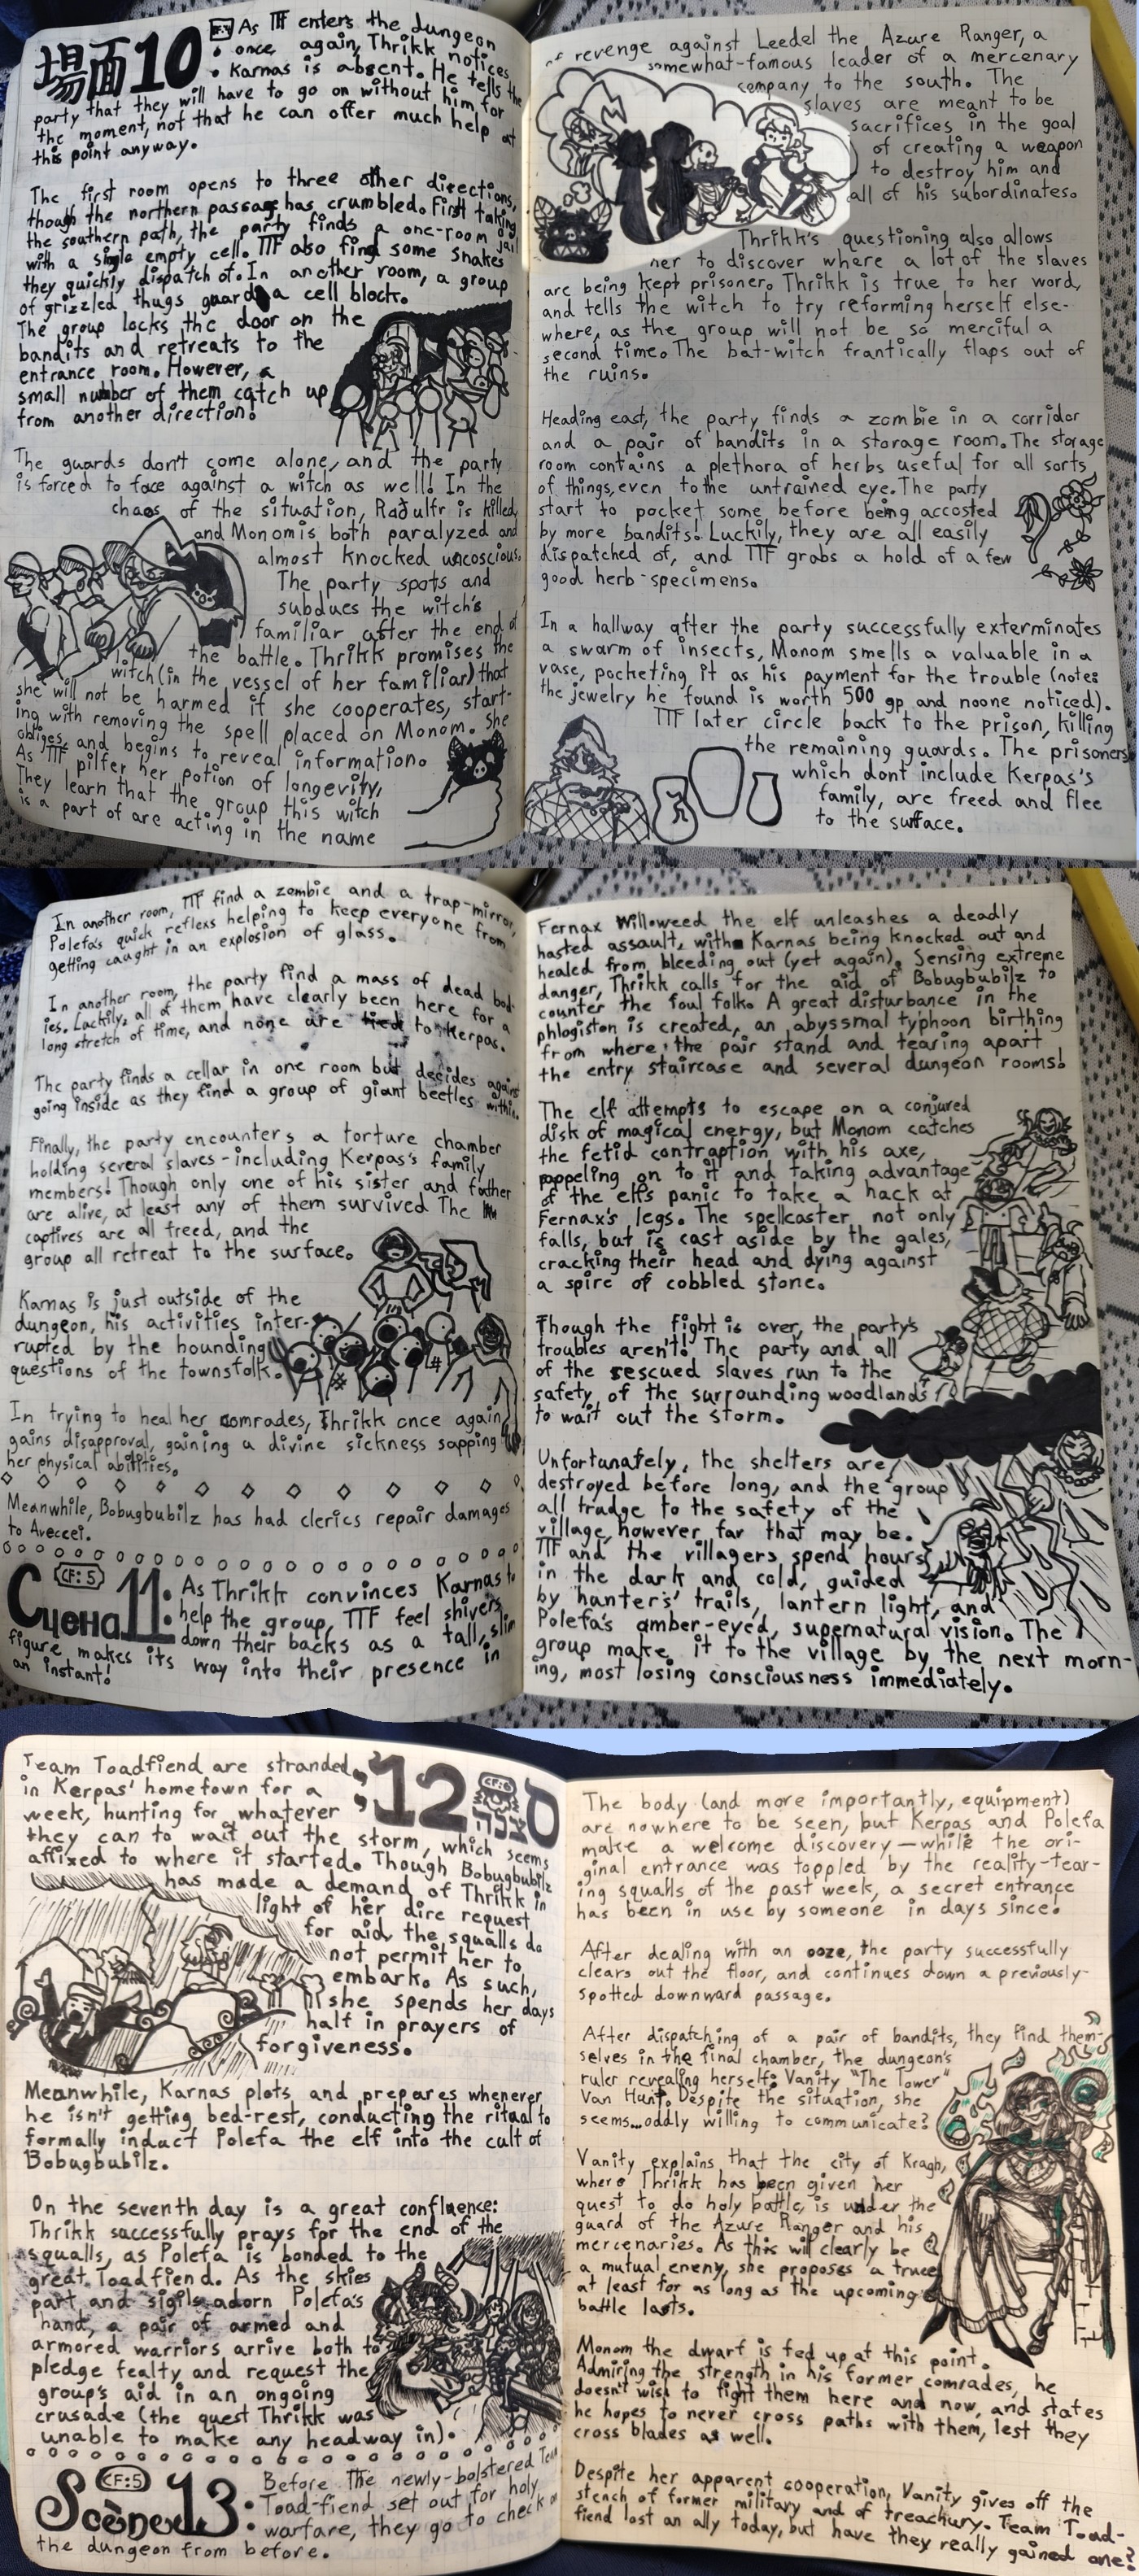 場面10
As TTF enters the dungeon
once again, Thrikk notices
Karnas is absent. He tells the
party that they will have to go on without him for
the moment, not that he can offer much help at
this point anyway.
The first room opens to three other directions,
though the northern passage has crumbled. First taking
the southern path, the party finds a one-room jail
with a single empty cell. TTF also find some snakes
they quickly dispatch of. In another room, a group
of grizzled thugs guard a cell block.
The group locks the door on the
bandits and retreats to the
entrance room. However, a
small number of them catch up
from another direction!
The guards don't come alone, and the party
is forced to face against a witch as well! In the
chaos of the situation, Raðulfr is killed,
and Monom is both paralyzed and
almost knocked uncoscious.
The party spots and
subdues the witch's
familiar after the end of
the battle. Thrikk promises the
witch (in the vessel of her familiar) that
she will not be harmed if she cooperates, start-
ing with removing the spell placed on Monom. She
obliges, and begins to reveal information.
As TTF pilfer her potion of longevity,
They learn that the group this witch
is a part of are acting in the name
of revenge against Leedel the Azure Ranger, a
somewhat-famous leader of a mercenary
company to the south. The
slaves are meant to be
sacrifices in the goal
of creating a weapon
to destroy him and
all of his subordinates.
Thrikk's questioning also allows
her to discover where a lot of the slaves
are being kept prisoner. Thrikk is true to her word,
and tells the witch to try reforming herself else-
where, as the group will not be so merciful a
second time. The bat-witch frantically flaps out of
the ruins.
Heading east, the party finds a zombie in a corridor
and a pair of bandits in a storage room. The storage
room contains a plethora of herbs useful for all sorts
of things, even to the untrained eye. The party
start to pocket some before being accosted
by more bandits! Luckily, they are all easily
dispatched of, and TTF grabs a hold of a few
good herb-specimens.
In a hallway after the party successfully exterminates
a swarm of insects, Monom smells a valuable in a
vase, pocketing it as his payment for the trouble (note:
the jewelry he found is worth 500 gp and noone noticed).
TTF later circle back to the prison, killing
the remaining guards. The prisoners,
which dont include Kerpas's
family, are freed and flee
to the surface.
In another room, TTF find a zombie and a trap-mirror,
Polefa's quick reflexs helping to keep everyone from
getting caught in an explosion of glass.
In another room, the party find a mass of dead bod-
ies. Luckily, all of them have clearly been here for a
long stretch of time, and none are tied to Kerpas.
The party finds a cellar in one room but decides against
going inside as they find a group of giant beetles within.
Finally, the party encounters a torture chamber
holding several slaves - including Kerpas's family
members! Though only one of his sister and father
are alive, at least any of them survived. The
captives are all freed, and the
group all retreat to the surface.
Karnas is just outside of the
dungeon, his activities inter-
rupted by the hounding
questions of the townsfolk.
In trying to heal her comrades, Thrikk once again
gains disapproval, gaining a divine sickness sapping
her physical abilities.
Meanwhile, Bobugbubilz has had clerics repair damages
to Aveccei.
CF: 5
Сцена 11:
As Thrikk convinces Karnas to
help the group, TTF feel shivers
down their backs as a tall, slim
figure makes its way into their presence in
an instant!
Fernax Willoweed the elf unleashes a deadly
hasted assault, with Karnas being knocked out and
healed from bleeding out (yet again). Sensing extreme
danger, Thrikk calls for the aid of Bobugbubilz to
counter the foul folk. A great disturbance in the
phlogiston is created, an abyssmal typhoon birthing
from where the pair stand and tearing apart
the entry staircase and several dungeon rooms!
The elf attempts to escape on a conjured
disk of magical energy, but Monom catches
the fetid contraption with his axe,
rappeling on to it and taking advantage
of the elf's panic to take a hack at
Fernax's legs. The spellcaster not only
falls, but is cast aside by the gales,
cracking their head and dying against
a spire of cobbled stone.
Though the fight is over, the party's
troubles aren't! The party and all
of the rescued slaves run to the
safety of the surrounding woodlands
to wait out the storm.
Unfortunately, the shelters are
destroyed before long, and the group
all trudge to the safety of the
village, however far that may be.
TTF and the villagers spend hours
in the dark and cold, guided
by hunters' trails, lantern light, and
Polefa's amber-eyed, supernatural vision. The
group make it to the village by the next morn-
ing, most losing consciousness immediately.
Team Toadfiend are stranded
in Kerpas' hometown for a
week, hunting for whatever
they can to wait out the storm, which seems
affixed to where it started. Though Bobugbubilz
has made a demand of Thrikk in
light of her dire request
for aid, the squalls do
not permit her to
embark. As such,
she spends her days
half in prayers of
forgiveness.
:12
CF:6
סצנה
Meanwhile, Karnas plots and prepares whenever
he isn't getting bed-rest, conducting the ritual to
formally induct Polefa the elf into the cult of
Bobugbubilz.
On the seventh day is a great confluence:
Thrikk successfully prays for the end of the
squalls, as Polefa is bonded to the
great Toadfiend. As the skies
part and sigils adorn Polefa's
hand, a pair of armed and
armored warriors arrive both to
pledge fealty and request the
group's aid in an ongoing
crusade (the quest Thrikk was
unable to make any headway in).
CF:5
Scène 13:
Before the newly-bolstered Team
Toad-fiend set out for holy
warfare, they go to check on
the dungeon from before.
The body (and more importantly, equipment)
are nowhere to be seen, but Kerpas and Polefa
make a welcome discovery — while the ori-
ginal entrance was toppled by the reality-tear-
ing squalls of the past week, a secret entrance
has been in use by someone in days since!
After dealing with an ooze, the party successfully
clears out the floor, and continues down a previously-
spotted downward passage.
After dispatching of a pair of bandits, they find them-
selves in the final chamber, the dungeon's
ruler revealing herself: Vanity "The Tower"
Van Hunt. Despite the situation, she
seems...oddly willing to communicate?
Vanity explains that the city of Kragh,
where Thrikk has been given her
quest to do holy battle, is under the
guard of the Azure Ranger and his
mercenaries. As this will clearly be
a mutual enemy, she proposes a truce
at least for as long as the upcoming
battle lasts.
Monom the dwarf is fed up at this point.
Admiring the strength in his former comrades, he
doesn't wish to fight them here and now, and states
he hopes to never cross paths with them, lest they
cross blades as well.
Despite her apparent cooperation, Vanity gives off the
stench of former military and of treachury. Team Toad-
fiend lost an ally today, but have they really gained one?